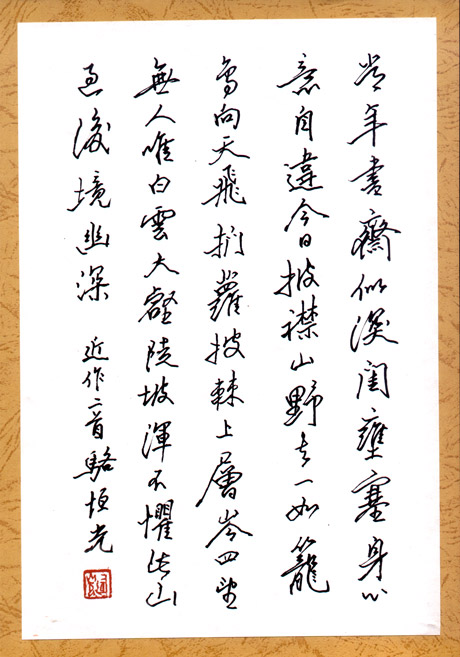 常年書齋似深閨壅塞身心
意自違今日披襟山野去一如籠
鳥向天飛捫蘿披棘上層岑四望
無人唯白雲大壑陡坡渾不懼此山
過後境幽深 近作二首駱恒光